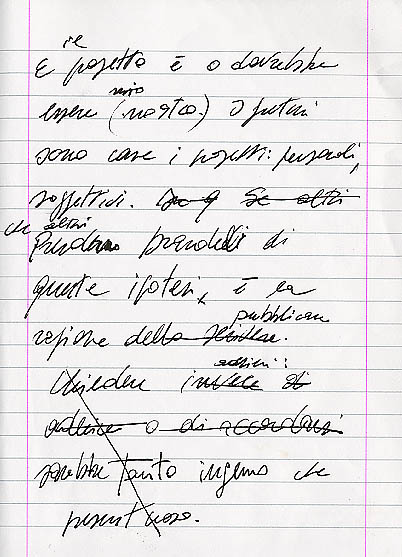 il
E progetto è o dovrebbe
mio
essere (nostro.) I futuri
sono come i progetti: personali,
soggettivi. Se altri
altri
che prendano brandelli di
queste ipotesi, è la
pubblicare
ragione della
Chiedere invece di
aderire o di accordarsi
sarebbe tanto ingenuo che
presuntuoso.